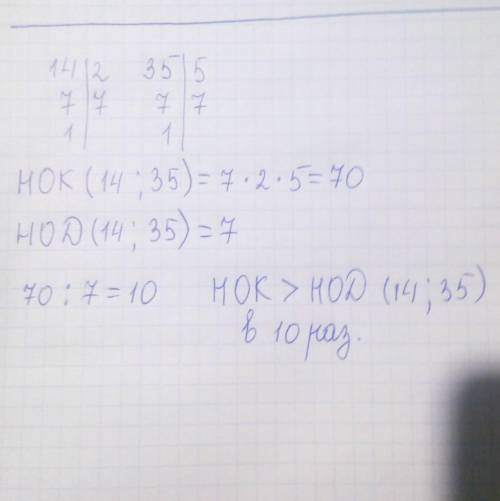 14|2 35|5
7|7 7|7
1| 1|
НОК (14 ; 35) = 7 · 2 · 5 = 70
НОD (14 ; 35) = 7
70 : 7 = 10 НОК > НОD (14 ; 35)
в 10 раз.